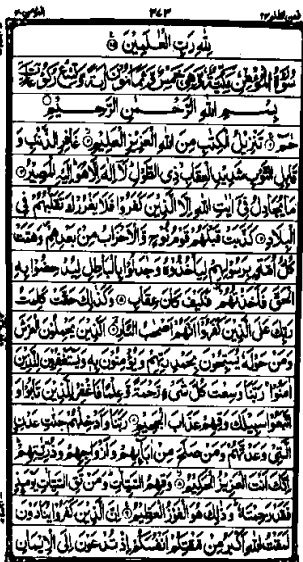 ٣٧٣
لِلّٰهِ رَبِّ الْعٰلَمِيْنَ
سُوْرَةُ الْمُؤْمِنِ مَكِّيَّةٌ
بِسْمِ اللّٰهِ الرَّحْمٰنِ الرَّحِيْمِ
حٰمٓ تَنْزِيْلُ الْكِتٰبِ مِنَ اللّٰهِ الْعَزِيْزِ الْعَلِيْمِ غَافِرِ الذَّنْبِ وَ
قَابِلِ التَّوْبِ شَدِيْدِ الْعِقَابِ ذِي الطَّوْلِ لَا اِلٰهَ اِلَّا هُوَ اِلَيْهِ الْمَصِيْرُ
مَا يُجَادِلُ فِيْ اٰيٰتِ اللّٰهِ اِلَّا الَّذِيْنَ كَفَرُوْا فَلَا يَغْرُرْكَ تَقَلُّبُهُمْ فِي
الْبِلَادِ كَذَّبَتْ قَبْلَهُمْ قَوْمُ نُوْحٍ وَّالْاَحْزَابُ مِنْ بَعْدِهِمْ وَهَمَّتْ
كُلُّ اُمَّةٍ بِرَسُوْلِهِمْ لِيَاْخُذُوْهُ وَجَادَلُوْا بِالْبَاطِلِ لِيُدْحِضُوْا بِهِ
الْحَقَّ فَاَخَذْتُهُمْ فَكَيْفَ كَانَ عِقَابِ وَكَذٰلِكَ حَقَّتْ كَلِمَتُ
رَبِّكَ عَلَى الَّذِيْنَ كَفَرُوْا اَنَّهُمْ اَصْحٰبُ النَّارِ اَلَّذِيْنَ يَحْمِلُوْنَ الْعَرْشَ
وَمَنْ حَوْلَهٗ يُسَبِّحُوْنَ بِحَمْدِ رَبِّهِمْ وَيُؤْمِنُوْنَ بِهٖ وَيَسْتَغْفِرُوْنَ لِلَّذِيْنَ
اٰمَنُوْا رَبَّنَا وَسِعْتَ كُلَّ شَيْءٍ رَّحْمَةً وَّعِلْمًا فَاغْفِرْ لِلَّذِيْنَ تَابُوْا وَ
اتَّبَعُوْا سَبِيْلَكَ وَقِهِمْ عَذَابَ الْجَحِيْمِ رَبَّنَا وَاَدْخِلْهُمْ جَنّٰتِ عَدْنِ
الَّتِيْ وَعَدْتَّهُمْ وَمَنْ صَلَحَ مِنْ اٰبَآئِهِمْ وَاَزْوَاجِهِمْ وَذُرِّيّٰتِهِمْ
اِنَّكَ اَنْتَ الْعَزِيْزُ الْحَكِيْمُ وَقِهِمُ السَّيِّاٰتِ وَمَنْ تَقِ السَّيِّاٰتِ يَوْمَئِذٍ
فَقَدْ رَحِمْتَهٗ وَذٰلِكَ هُوَ الْفَوْزُ الْعَظِيْمُ اِنَّ الَّذِيْنَ كَفَرُوْا يُنَادَوْنَ
لَمَقْتُ اللّٰهِ اَكْبَرُ مِنْ مَّقْتِكُمْ اَنْفُسَكُمْ اِذْ تُدْعَوْنَ اِلَى الْاِيْمَانِ